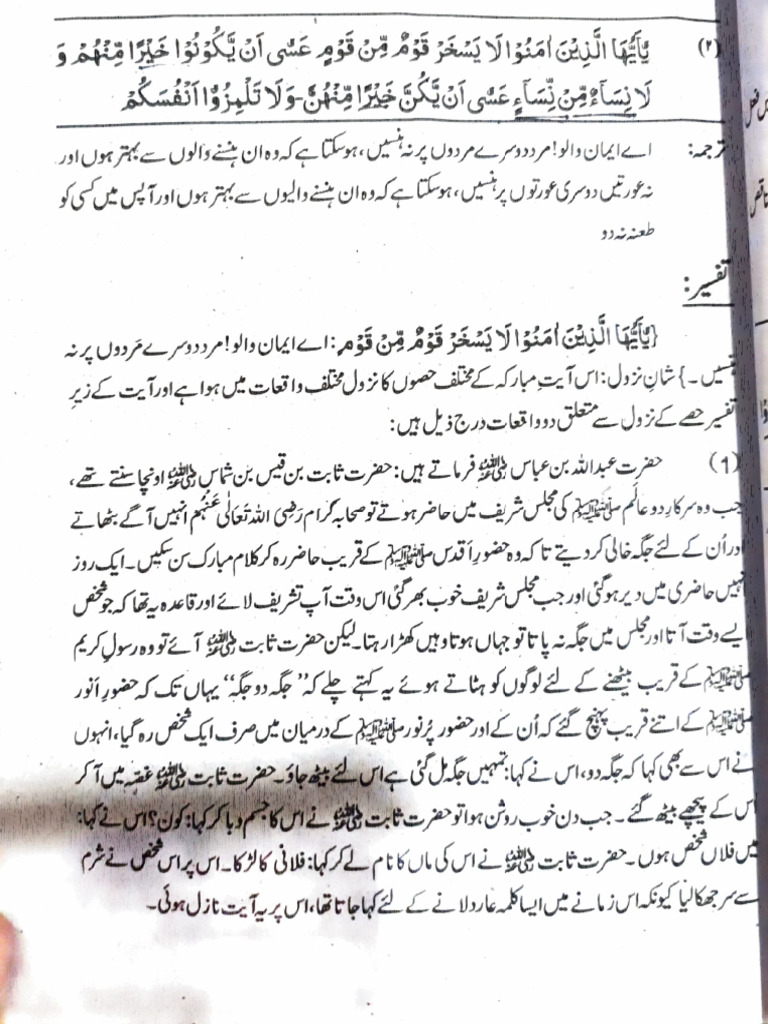 (۲) یٰۤاَیُّهَا الَّذِیْنَ اٰمَنُوْا لَا یَسْخَرْ قَوْمٌ مِّنْ قَوْمٍ عَسٰۤى اَنْ یَّكُوْنُوْا خَیْرًا مِّنْهُمْ وَ
لَا نِسَآءٌ مِّنْ نِّسَآءٍ عَسٰۤى اَنْ یَّكُنَّ خَیْرًا مِّنْهُنَّ-وَ لَا تَلْمِزُوْۤا اَنْفُسَكُمْ
ترجمہ: اے ایمان والو! مرد دوسرے مردوں پر نہ ہنسیں، ہوسکتا ہے کہ وہ ان ہنسنے والوں سے بہتر ہوں اور
نہ عورتیں دوسری عورتوں پر ہنسیں، ہوسکتا ہے کہ وہ ان ہنسنے والیوں سے بہتر ہوں اور آپس میں کسی کو
طعنہ نہ دو
تفسیر:
{یٰۤاَیُّهَا الَّذِیْنَ اٰمَنُوْا لَا یَسْخَرْ قَوْمٌ مِّنْ قَوْمٍ: اے ایمان والو! مرد دوسرے مَردوں پر نہ
ہنسیں۔} شانِ نزول: اس آیتِ مبارکہ کے مختلف حصوں کا نزول مختلف واقعات میں ہوا ہے اور آیت کے زیرِ
تفسیر حصے کے نزول سے متعلق دو واقعات درج ذیل ہیں:
(1) حضرت عبداللہ بن عباس رضی اللہ عنہ فرماتے ہیں: حضرت ثابت بن قیس بن شماس رضی اللہ عنہ اونچا سنتے تھے،
جب وہ سرکارِ دو عالَم صلی اللہ علیہ وسلم کی مجلس شریف میں حاضر ہوتے تو صحابہ کرام رَضِیَ اللہ تَعَالٰی عَنْہُم انہیں آگے بٹھاتے
اور اُن کے لئے جگہ خالی کر دیتے تاکہ وہ حضورِ اَقدس صلی اللہ علیہ وسلم کے قریب حاضر رہ کر کلام مبارک سن سکیں۔ ایک روز
انہیں حاضری میں دیر ہوگئی اور جب مجلس شریف خوب بھر گئی اس وقت آپ تشریف لائے اور قاعدہ یہ تھا کہ جو شخص
ایسے وقت آتا اور مجلس میں جگہ نہ پاتا تو جہاں ہوتا وہیں کھڑا رہتا۔ لیکن حضرت ثابت رضی اللہ عنہ آئے تو وہ رسولِ کریم
صلی اللہ علیہ وسلم کے قریب بیٹھنے کے لئے لوگوں کو ہٹاتے ہوئے یہ کہتے چلے کہ ”جگہ دو جگہ“ یہاں تک کہ حضورِ اَنور
صلی اللہ علیہ وسلم کے اتنے قریب پہنچ گئے کہ اُن کے اور حضور پُر نور صلی اللہ علیہ وسلم کے درمیان میں صرف ایک شخص رہ گیا، انہوں
نے اس سے بھی کہا کہ جگہ دو، اس نے کہا: تمہیں جگہ مل گئی ہے اس لئے بیٹھ جاؤ۔ حضرت ثابت رضی اللہ عنہ غصہ میں آکر
اس کے پیچھے بیٹھ گئے۔ جب دن خوب روشن ہوا تو حضرت ثابت رضی اللہ عنہ نے اس کا جسم دبا کر کہا: کون؟ اس نے کہا:
میں فلاں شخص ہوں۔ حضرت ثابت رضی اللہ عنہ نے اس کی ماں کا نام لے کر کہا: فلانی کا لڑکا۔ اس پر اس شخص نے شرم
سے سر جھکا لیا کیونکہ اس زمانے میں ایسا کلمہ عار دلانے کے لئے کہا جاتا تھا، اس پر یہ آیت نازل ہوئی۔